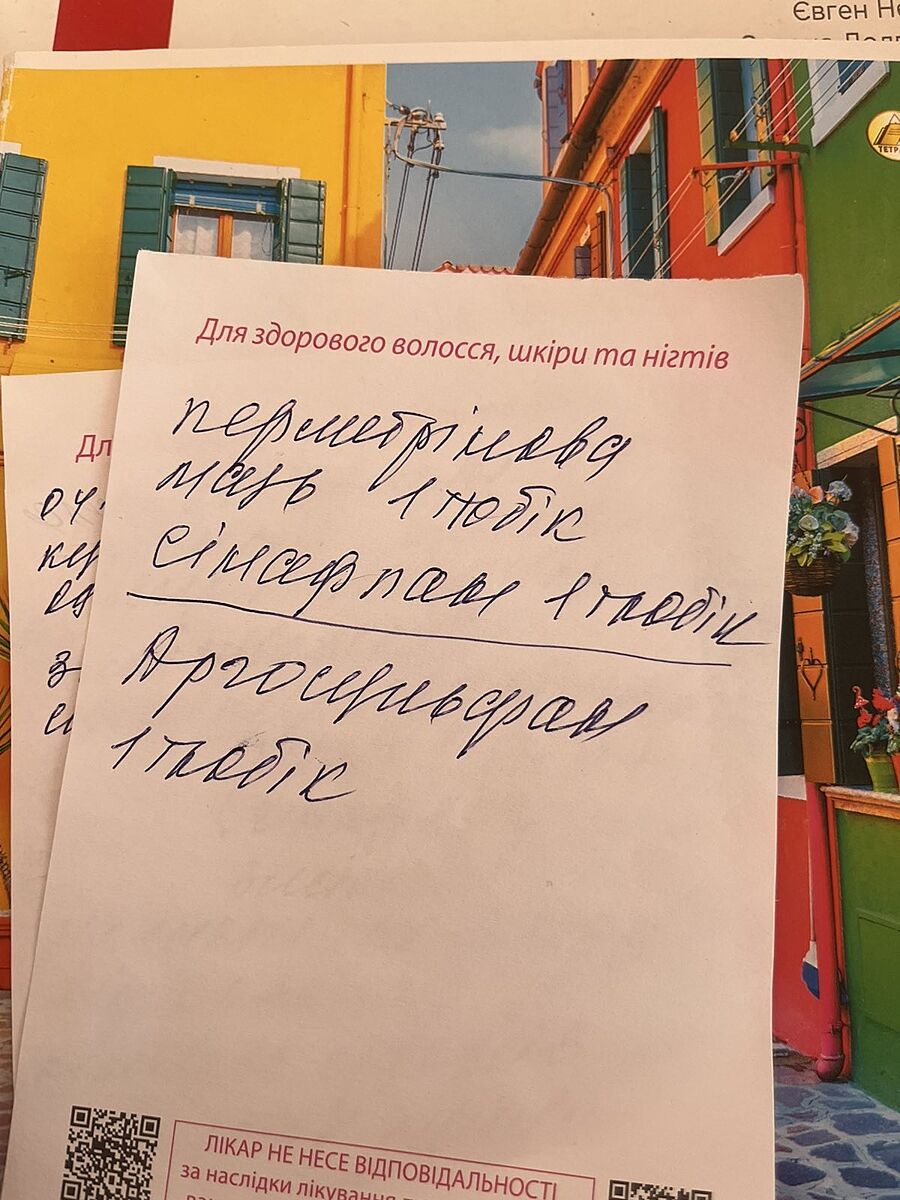 Євген Не
ТЕТР
Для здорового волосся, шкіри та нігтів
перметрінова
мазь 1 тюбік
сінафлан 1 тюбік
Аргосульфан
1 тюбік
Дл
ЛІКАР НЕ НЕСЕ ВІДПОВІДАЛЬНОСТІ
за наслідки лікування